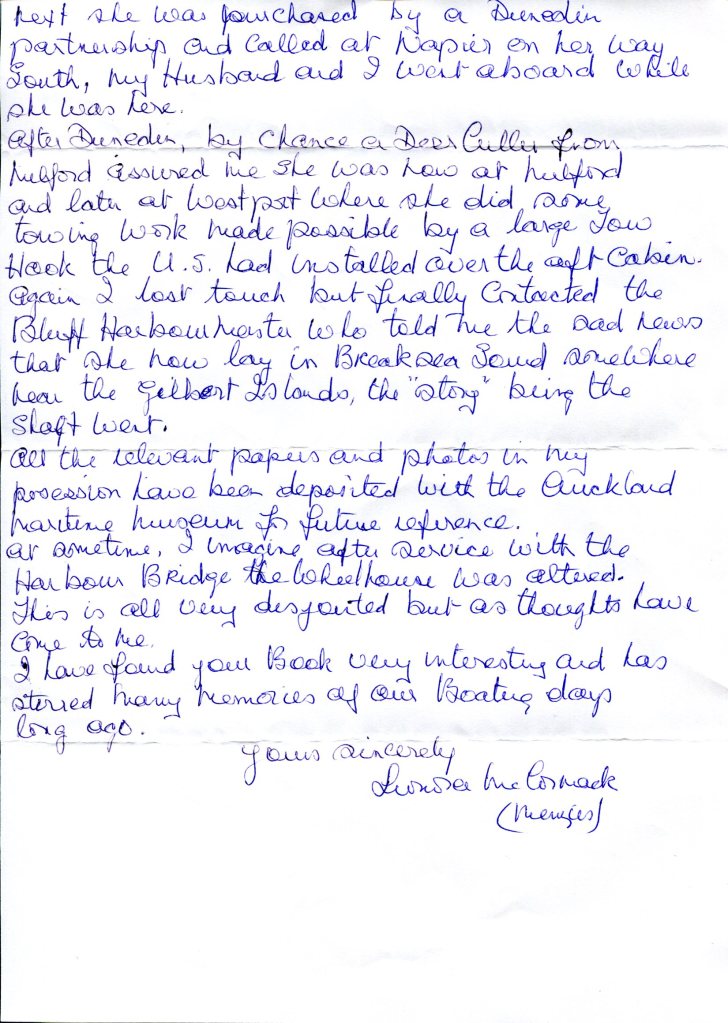 next she was purchased by a Dunedin
partnership and called at Napier on her way
South, my Husband and I went aboard while
she was here.
After Duneden, by chance a Deer Culler from
Milford assured me she was now at Milford
and later at Westport where she did some
towing work made possible by a large Tow
Hook the U.S. had installed over the aft Cabin.
Again I lost touch but finally Contacted the
Bluff Harbourmaster who told me the sad news
that she now lay in Breaksea Sound somewhere
near the Gilbert Islands, the "story" being the
Shaft went.
All the relevant papers and photos in my
posession have been deposited with the Auckland
maritime museum for future reference.
at sometime, I imagine after service with the
Harbour Bridge the Wheelhouse was altered.
This is all very disjointed but as thoughts have
come to me.
I have found your Book very interesting and has
stirred many memories of our Boating days
long ago.
Yours sincerely
McCormack
(Menzies)